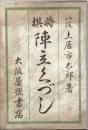 八段土居市太郎著
将棋
陣立くづし
大阪屋號書店